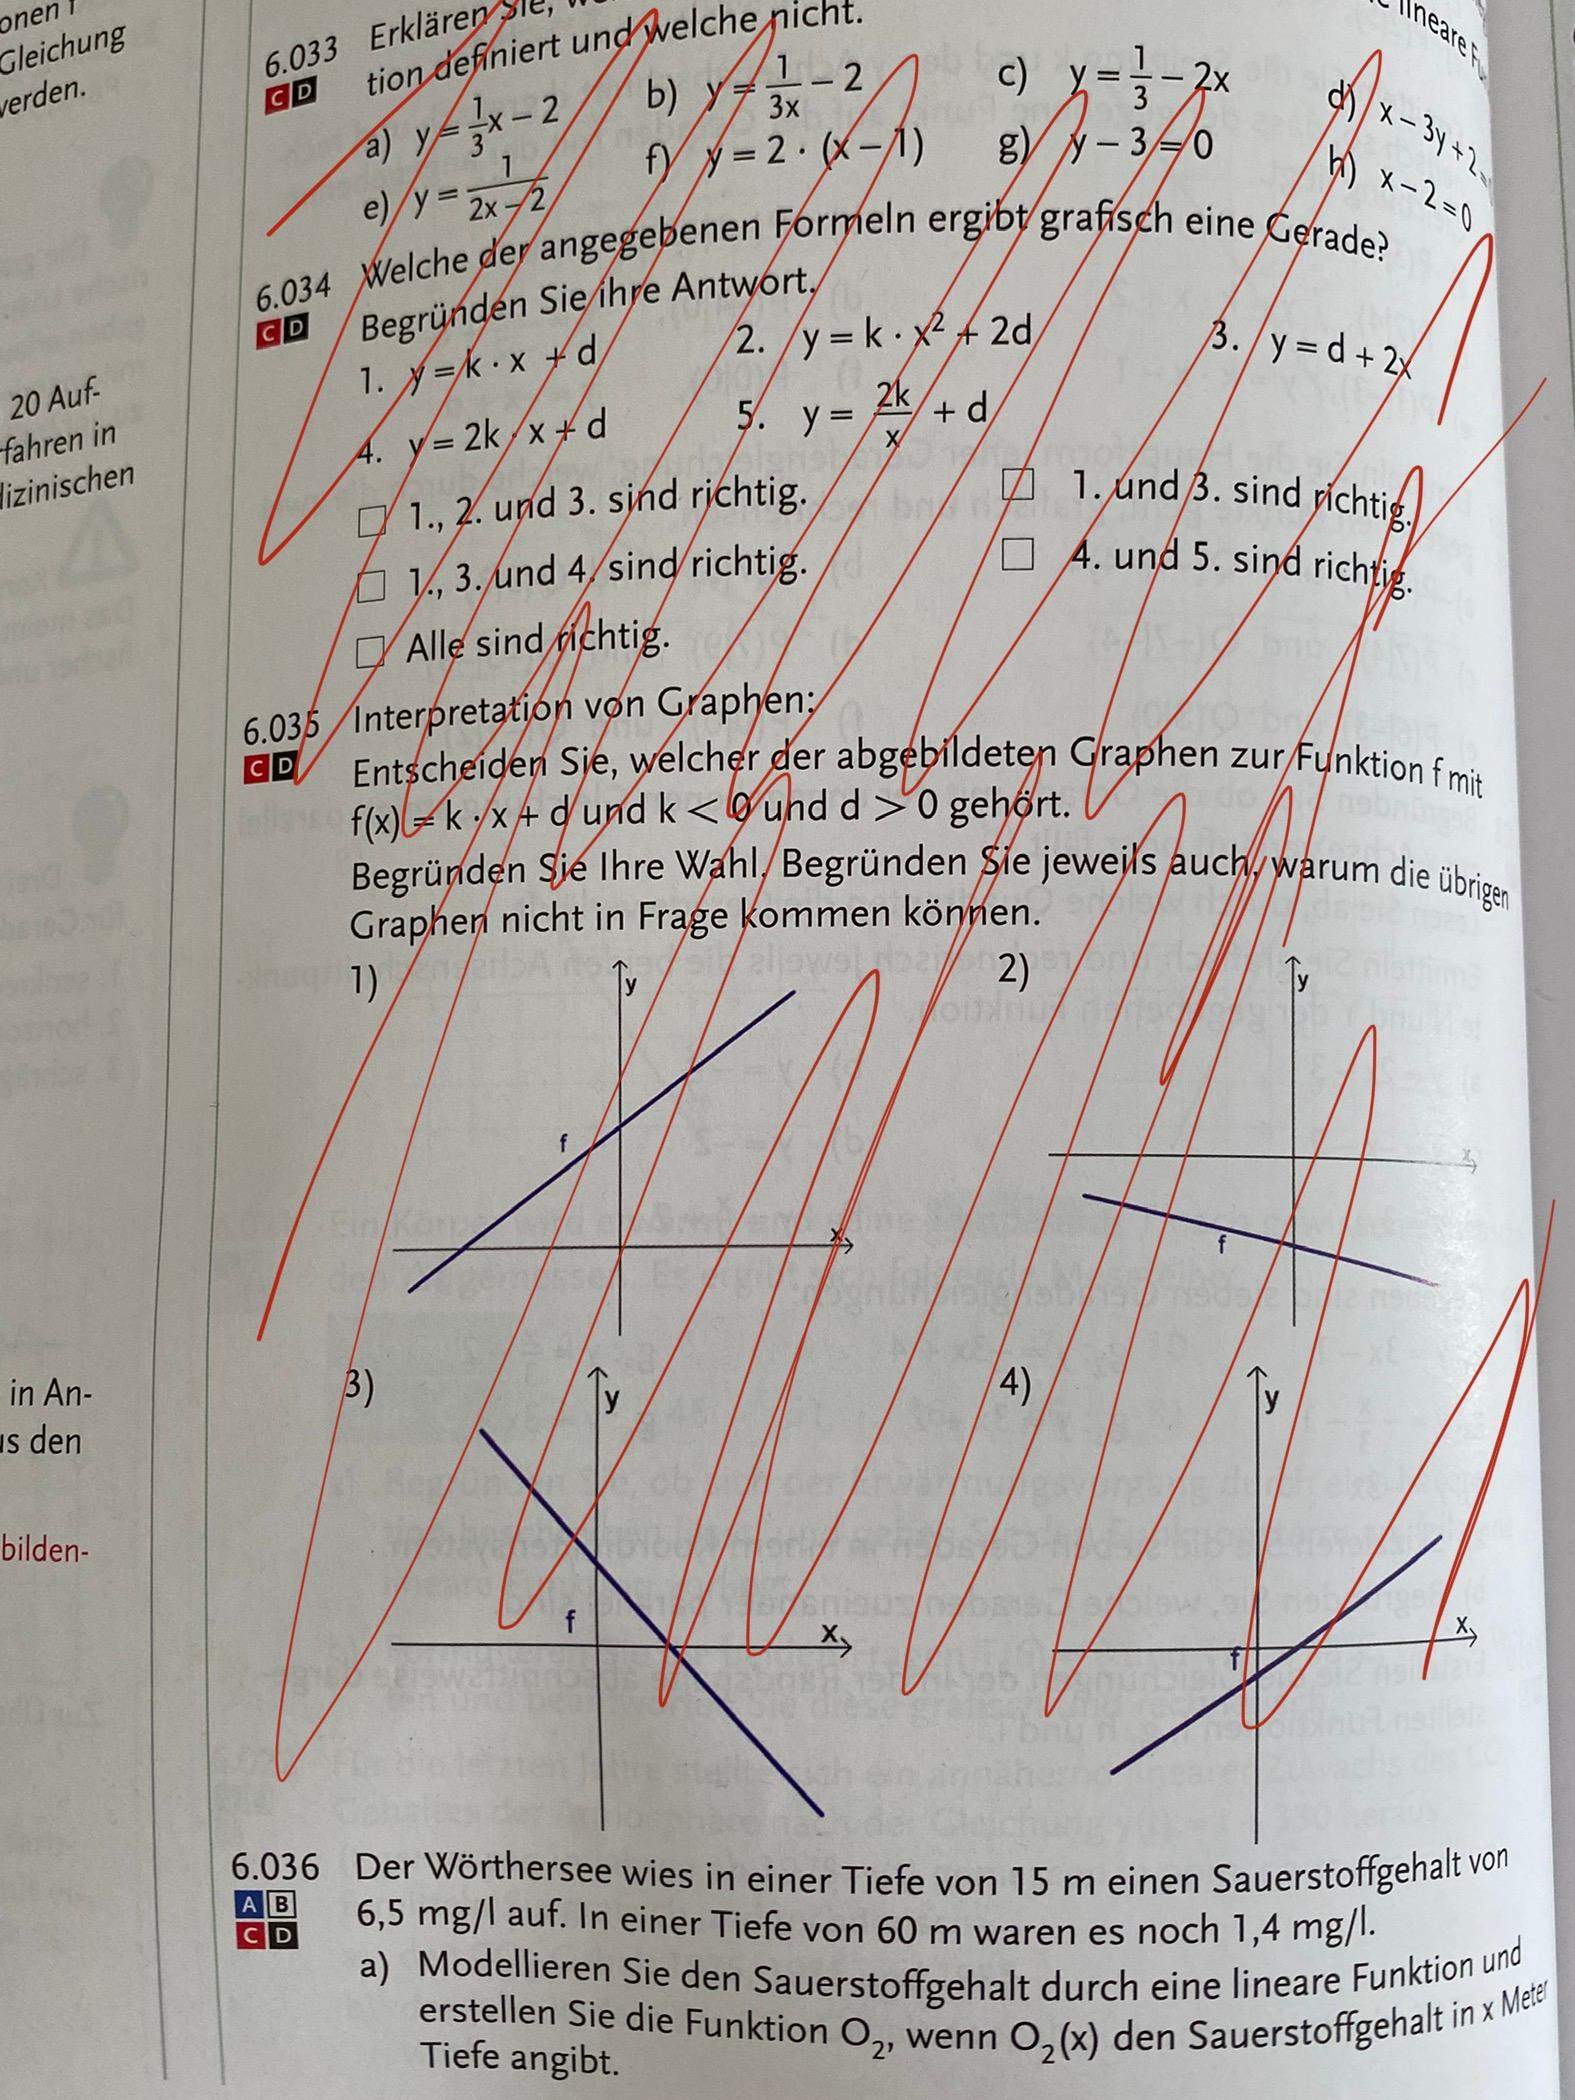 onen f
Gleichung
verden.
20 Auf-
fahren in
dizinischen
in An-
us den
bilden-
6.033 Erklären Sie,
CD tion definiert und welche nicht.
a) y = 1/3 x – 2 b) y = 1/(3x) – 2 c) y = 1/3 – 2x d) x – 3y + 2 =
e) y = 1/(2x – 2) f) y = 2 · (x – 1) g) y – 3 = 0 h) x – 2 = 0
6.034 Welche der angegebenen Formeln ergibt grafisch eine Gerade?
CD Begründen Sie ihre Antwort.
1. y = k · x + d 2. y = k · x² + 2d 3. y = d + 2x
4. y = 2k · x + d 5. y = 2k/x + d
☐ 1., 2. und 3. sind richtig. ☐ 1. und 3. sind richtig.
☐ 1., 3. und 4. sind richtig. ☐ 4. und 5. sind richtig.
☐ Alle sind richtig.
6.035 Interpretation von Graphen:
CD Entscheiden Sie, welcher der abgebildeten Graphen zur Funktion f mit
f(x) = k · x + d und k < 0 und d > 0 gehört.
Begründen Sie Ihre Wahl. Begründen Sie jeweils auch, warum die übrigen
Graphen nicht in Frage kommen können.
1) y 2) y
f x
x f
3) y 4) y
f x f x
6.036 Der Wörthersee wies in einer Tiefe von 15 m einen Sauerstoffgehalt von
AB 6,5 mg/l auf. In einer Tiefe von 60 m waren es noch 1,4 mg/l.
CD a) Modellieren Sie den Sauerstoffgehalt durch eine lineare Funktion und
erstellen Sie die Funktion O₂, wenn O₂(x) den Sauerstoffgehalt in x Meter
Tiefe angibt.